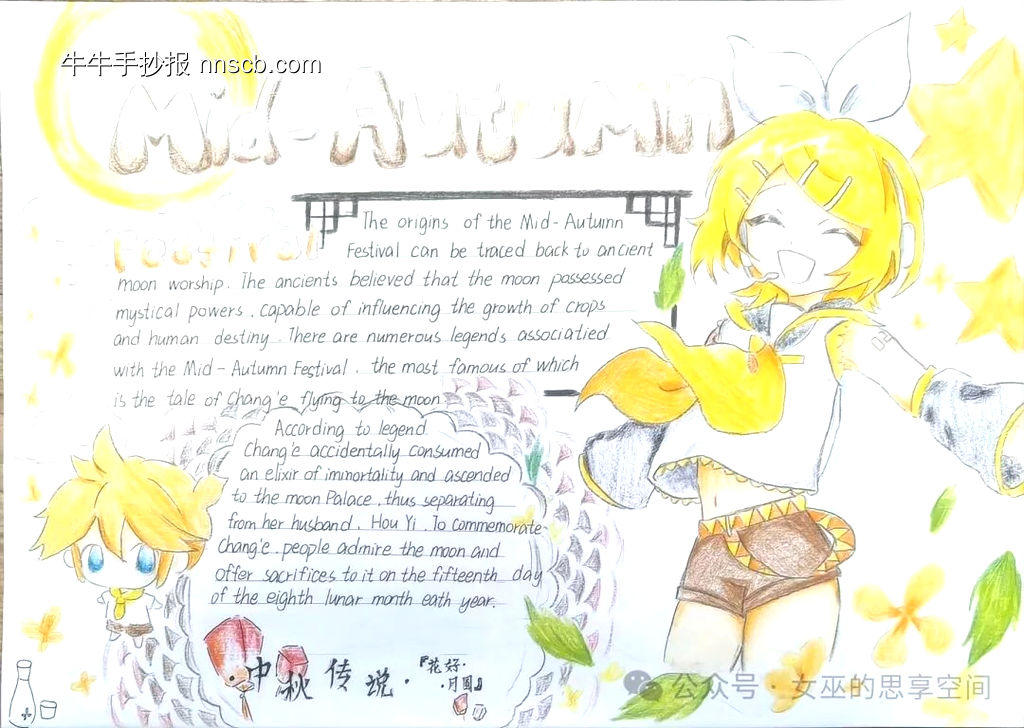 牛牛手抄报 nnscb.com
Mid-Autumn
The origins of the Mid-Autumn
Festival can be traced back to ancient
moon worship. The ancients believed that the moon possessed
mystical powers, capable of influencing the growth of crops
and human destiny. There are numerous legends associatied
with the Mid-Autumn Festival, the most famous of which
is the tale of Chang'e flying to the moon
According to legend
Chang'e accidentally consumed
an elixir of immortality and ascended
to the moon Palace, thus separating
from her husband, Hou Yi. To commemorate
Chang'e, people admire the moon and
offer sacrifices to it on the fifteenth day
of the eighth lunar month eath year.
中秋传说·『花好·
·月圆』
02
公众号·女巫的思享空间